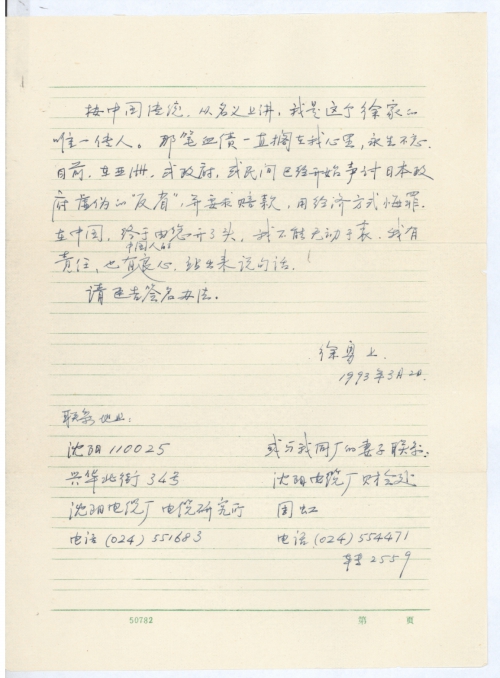 按中国传统，从名义上讲，我是这个徐家的
唯一传人。那笔血债一直搁在我心里，永生不忘。
目前，在亚洲，或政府，或民间已经开始声讨日本政
府虚伪的“反省”，并要求赔款，用经济方式悔罪。
在中国，终于由您开了头，我不能无动于衷。我有
责任，也有中国人的良心，站出来说句话！
请函告签名办法。
徐勇 上
1993年3月2日
联系地址：
沈阳 110025
兴华北街34号
沈阳电缆厂电缆研究所
电话 (024) 551683
或与我同厂的妻子联系：
沈阳电缆厂财会处
周虹
电话 (024) 554471
转2559
50782
第 页